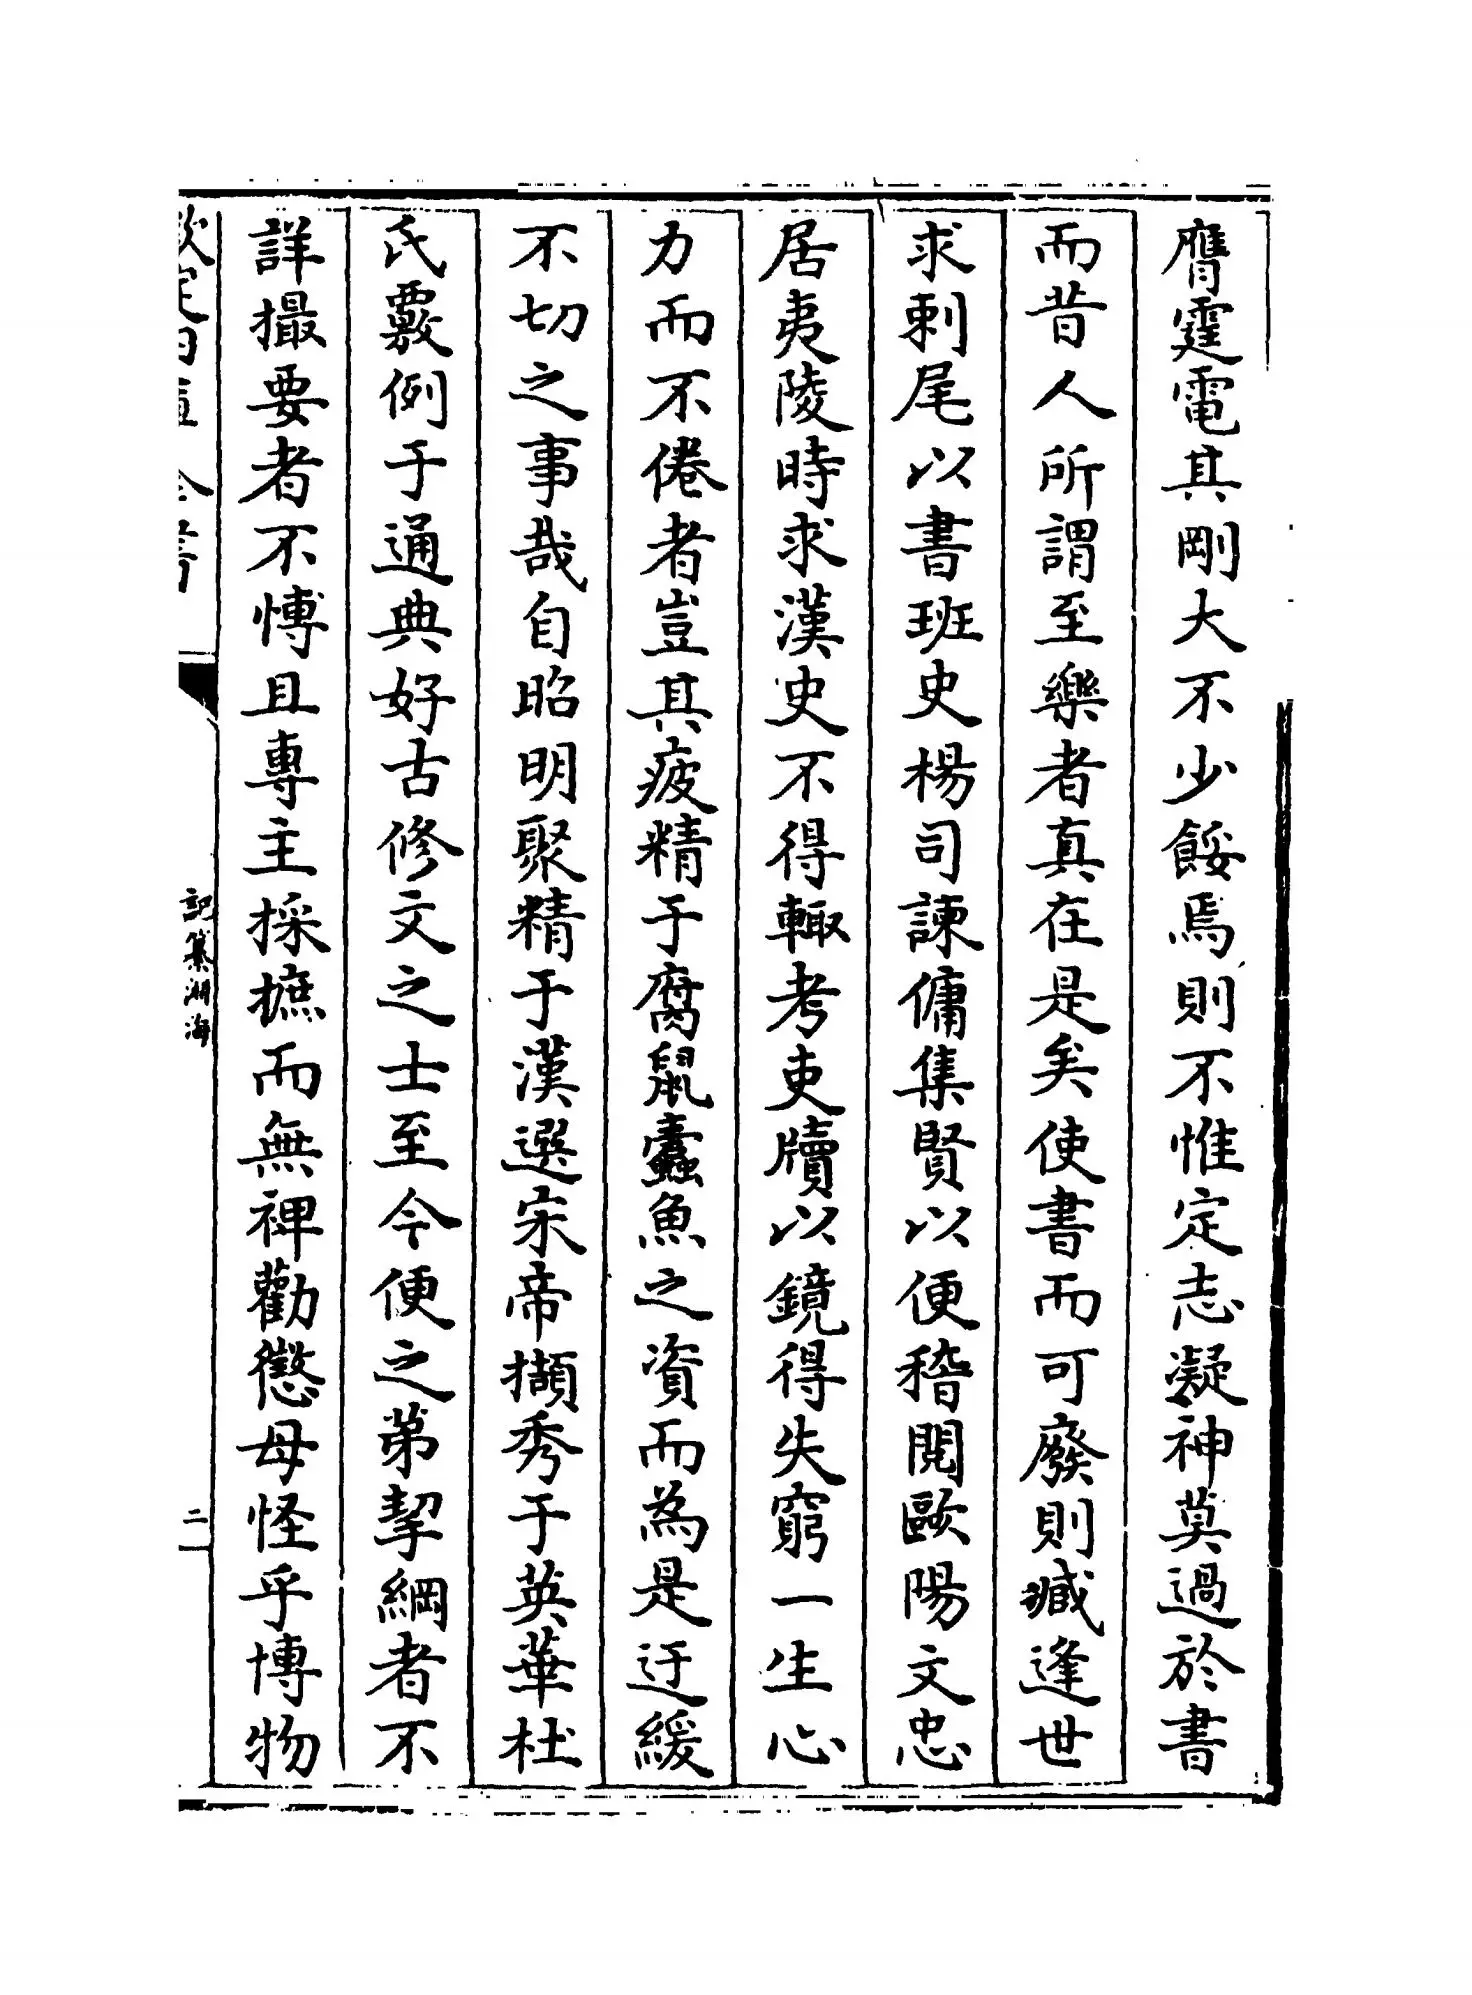 膺霆電其剛大不少餒焉則不惟定志凝神莫過於書
而昔人所謂至樂者真在是矣使書而可廢則臧逢世
求刺尾以書班史楊司諫傭集賢以便稽閱歐陽文忠
居夷陵時求漢史不得輙考吏牘以鏡得失窮一生心
力而不倦者豈其疲精于腐鼠蠹魚之資而為是迂緩
不切之事哉自昭明聚精于漢選宋帝擷秀于英華杜
氏覈例于通典好古修文之士至今便之第挈綱者不
詳撮要者不愽且專主採摭而無裨勸懲毋怪乎博物
欽定四庫全書
記纂淵海
二